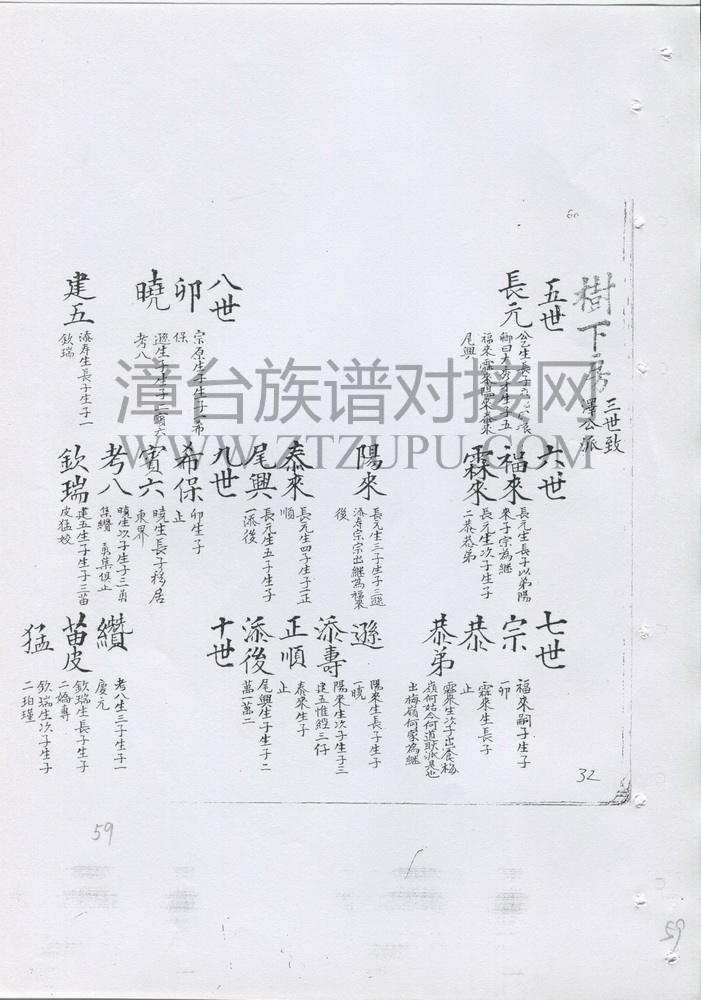 樹下房
三世致
澤公派
五世
長元
福來霖來陽來泰來
尾興
六世
福來
長元生長子以弟陽
來子宗為継
霖來
長元生次子生子
二恭恭弟
七世
宗
福來嗣子生子
一卯
恭
霖來生長子
止
恭弟
霖來生次子出食梅
出梅嶺何家為継
陽來
長元生三子生子三遜
添壽宗宗出継為福來
後
泰來
長元生四子生子二正
順
尾興
長元生五子生子
一添後
遜
陽來生長子生子
一曉
添壽
陽來生次子生子三
建五惟經三仔
正順
泰來生子
止
添後
尾興生子生子二
萬一萬二
八世
卯
宗原生子生子一希
保
曉
考八
建五
添壽生長子生子一
欽瑞
九世
希保
卯生子
止
賓六
曉生長子移居
東界
考八
曉生次子生子三勇
集纘 勇集俱止
欽瑞
建五生子生子三苗
皮猛姣
十世
纘
考八生三子生子一
慶元
苗皮
欽瑞生長子生子
二嬌專
猛
欽瑞生次子生子
二珀瑾
漳台族谱对接网
WWW.ZTZUPU.COM
60
32
59
59